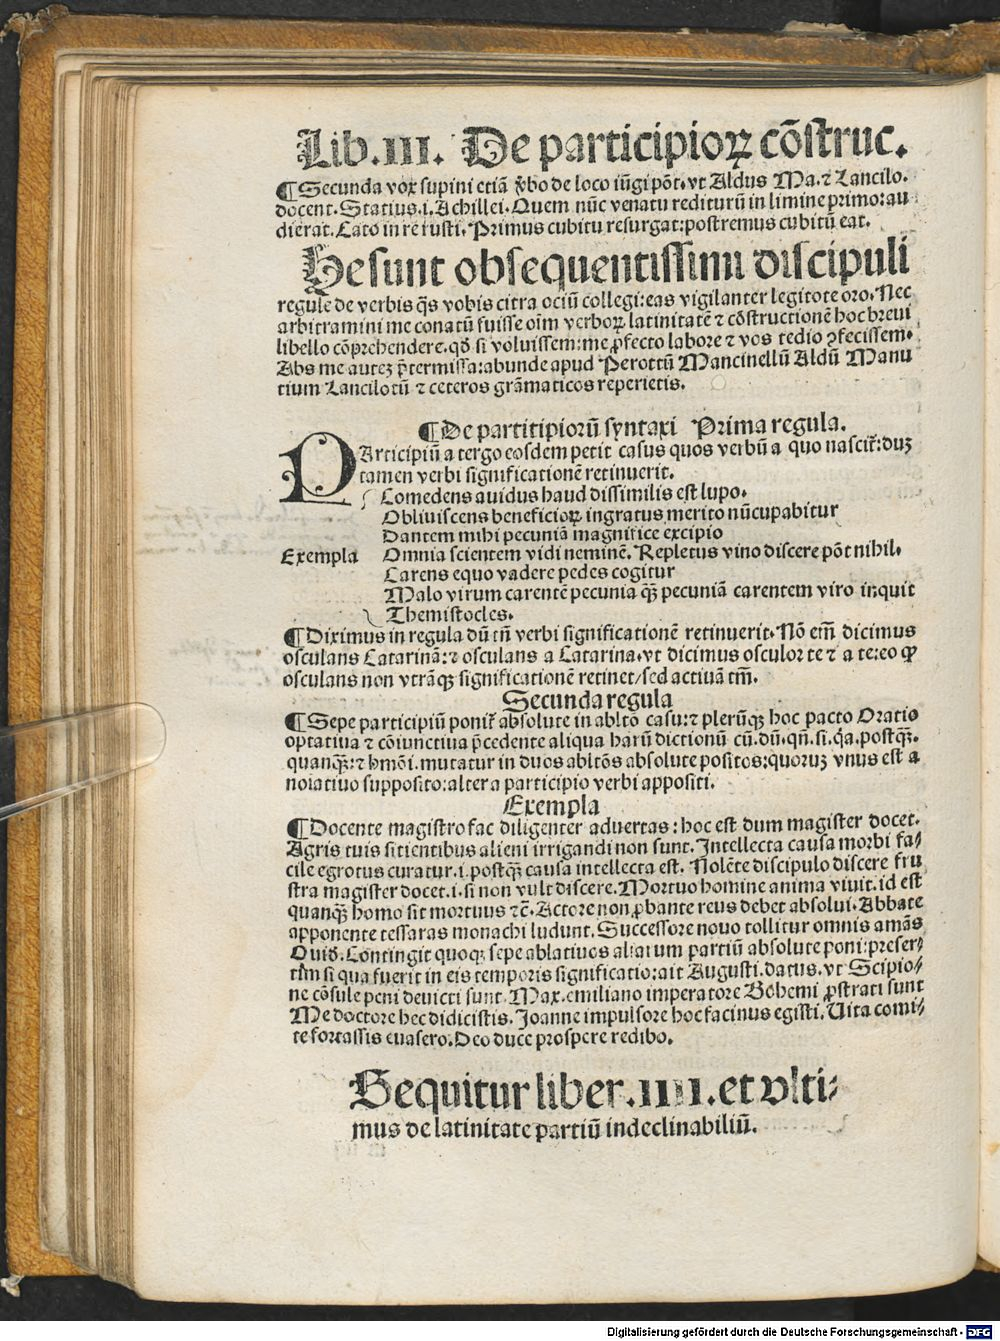 Lib.III. De participioꝝ cõstruc.
¶Secunda vox supini etiã v̓bo de loco iũgi põt. vt Aldus Ma. ⁊ Lancilo.
docent. Statius.i. Achillei. Quem nũc venatu rediturũ in limine primo: au
dierat. Cato in re rusti. Primus cubitu resurgat: postremus cubitũ eat.
He sunt obsequentissimi discipuli
regule de verbis q̃s vobis citra ociũ collegi: eas vigilanter legitote oro. Nec
arbitramini me conatũ fuisse oĩm verboꝝ latinitatẽ ⁊ cõstructionẽ hoc breui
libello cõprehendere. qđ si voluissem: me ꝓfecto labore ⁊ vos tedio ꝯfecissem.
Abs me autez p̃termissa: abunde apud Perottũ Mancinellũ Aldũ Manu
tium Lancilotũ ⁊ ceteros grãmaticos reperietis.
¶De partitipiorũ syntaxi Prima regula.
PArticipiũ a tergo eosdem petit casus quos verbũ a quo nascit̃: duʒ
tamen verbi significationẽ retinuerit.
Comedens auidus haud dissimilis est lupo.
Obliuiscens beneficioꝝ ingratus merito nũcupabitur
Dantem mihi pecuniã magnifice excipio
Exempla Omnia scientem vidi neminẽ. Repletus vino discere põt nihil.
Carens equo vadere pedes cogitur
Malo virum carentẽ pecunia q̃ʒ pecuniã carentem viro inquit
Themistocles.
¶Diximus in regula dũ tñ verbi significationẽ retinuerit. Nõ em̃ dicimus
osculans Catarinã: ⁊ osculans a Catarina. vt dicimus osculor te ⁊ a te: eo ꝙ
osculans non vtrãqʒ significationẽ retinet/ sed actiuã tm̃.
Secunda regula
¶Sepe participiũ ponit̃ absolute in abltõ casu: ⁊ plerũqʒ hoc pacto Oratio
optatiua ⁊ cõiunctiua p̃cedente aliqua harũ dictionũ cũ. dũ. qñ. si. q̃a. postq̃ʒ.
quanq̃ʒ: ⁊ hmõi. mutatur in duos abltõs absolute positos: quoruʒ vnus est a
noiatiuo supposito: altera participio verbi appositi.
Exempla
¶Docente magistro fac diligenter aduertas: hoc est dum magister docet.
Agris tuis sitientibus alieni irrigandi non sunt. Intellecta causa morbi fa⸗
cile egrotus curatur.i. postq̃ʒ causa intellecta est. Nolẽte discipulo discere fru
stra magister docet.i. si non vult discere. Mortuo homine anima viuit. id est
quanq̃ʒ homo sit mortuus ⁊c̃. Actore non ꝓbante reus debet absolui. Abbate
apponente tessaras monachi ludunt. Successore nouo tollitur omnis amãs
Ouiđ. Contingit quoqʒ sepe ablatiuos aliarum partiũ absolute poni: preser⸗
tĩm si qua fuerit in eis temporis significatio: ait Augusti. datus. vt Scipio⸗
ne cõsule peni deuicti sunt. Max. emiliano imperatore Bohemi ꝓstrati sunt
Me doctore hec didicistis. Joanne impulsore hoc facinus egisti. Uita comi⸗
te fortassis euasero. Deo duce prospere redibo.
Sequitur liber.IIII.et vlti⸗
mus de latinitate partiũ indeclinabiliũ.
Digitalisierung gefördert durch die Deutsche Forschungsgemeinschaft - DFG